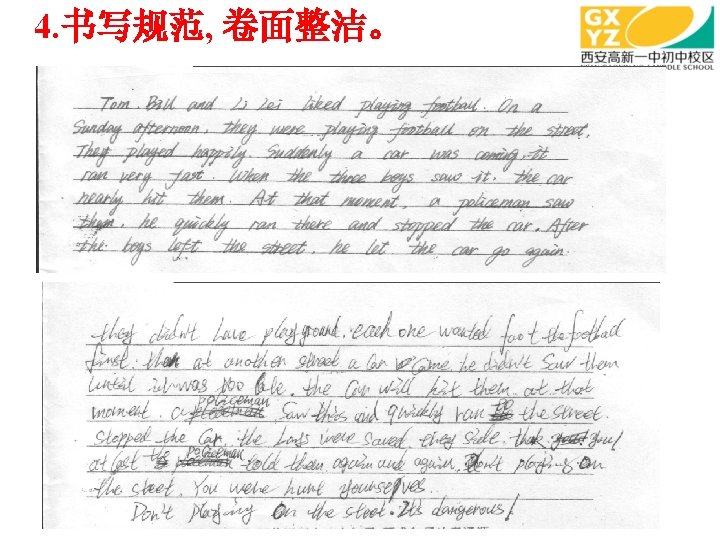 4. 书写规范, 卷面整洁。
GX
YZ
西安高新一中初中校区
Tom. Bill and Li Lei liked playing football. On a
Sunday afternoon, they were playing football on the street.
They played happily. Suddenly a car was coming. it
ran very fast. When the three boys saw it, the car
nearly hit them. At that moment, a policeman saw
them, he quickly ran there and stopped the car. After
the boys left the street, he let the car go again.
they didn't have playground. each one wanted foot the football
first. than at another street a car came he didn't saw them
until it was too late. the car will hit them at that
moment. a policeman saw this and quickly ran to the street.
stopped the car. the were saved. they side. thank you!
at last the policeman told them again and again. Don't playing on
the street. You were hunt yourselves.
Don't playing on the street. It's dangerous!